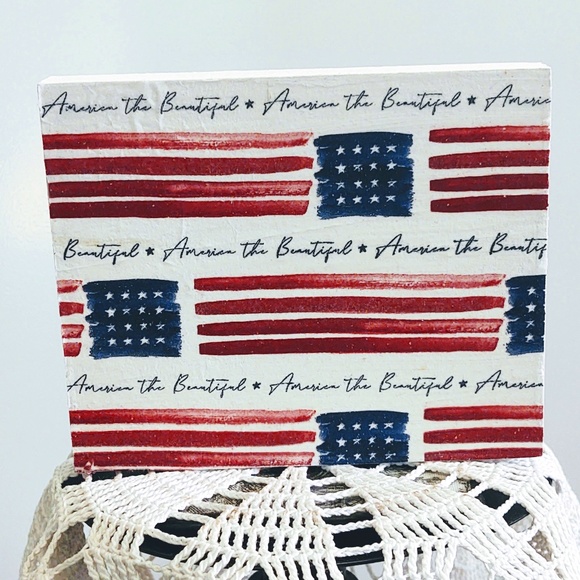 America the Beautiful ★ America the Beautiful ★ Americ
Beautiful ★ America the Beautiful ★ America the Beautif
America the Beautiful ★ America the Beautiful ★ America